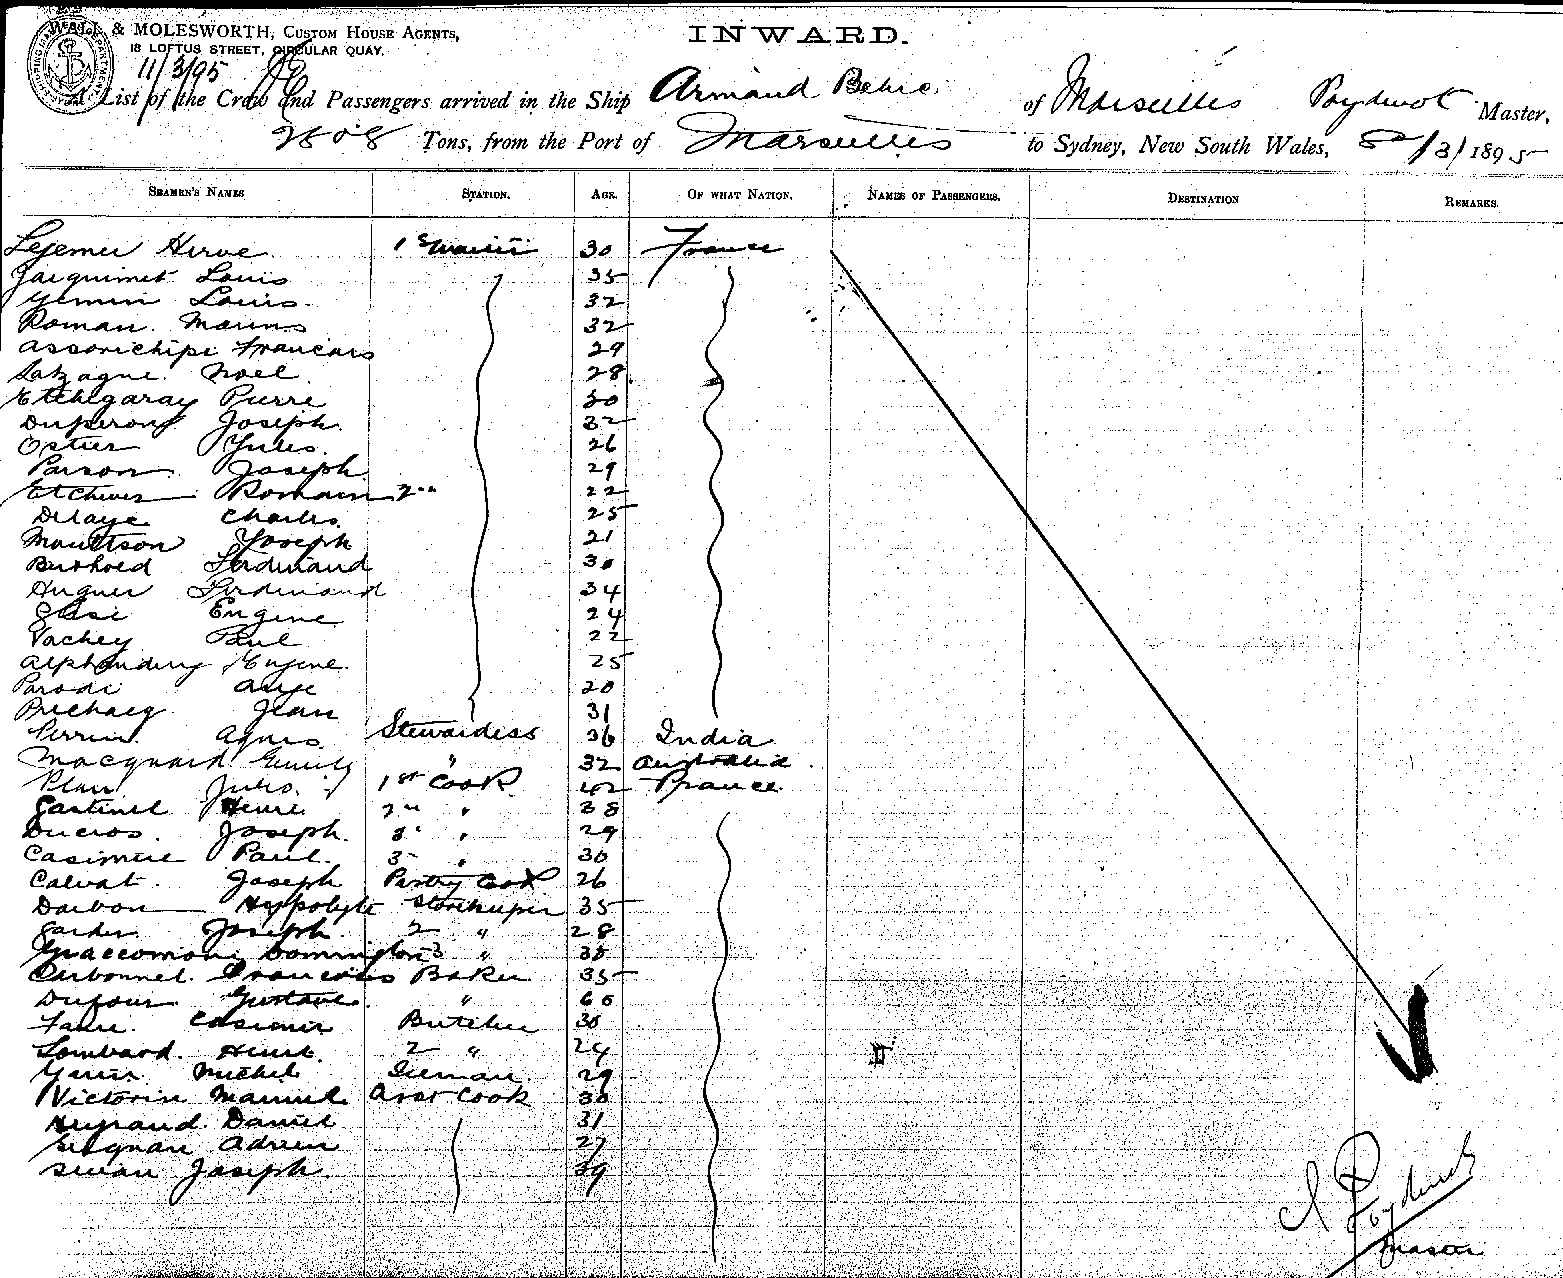 & MOLESWORTH, CUSTOM HOUSE AGENTS,
18 LOFTUS STREET, CIRCULAR QUAY.
INWARD.
11/3/95
List of the Crew and Passengers arrived in the Ship Armand Behic of Marseilles Poydenot Master,
2808 Tons, from the Port of Marseilles to Sydney, New South Wales, 8/3/1895
SEAMEN'S NAMES STATION. AGE. OF WHAT NATION. NAMES OF PASSENGERS. DESTINATION REMARKS.
Herve 30 France
Jacquimet Louis 35
Louis 32
Roman Marius 32
Francois 29
Noel 28
Etchegaray Pierre 30
Duperon Joseph 32
Ostier Jules 26
Parson Joseph 29
Romain 2nd 22
Delaye Charles 25
Moultson Joseph 21
Berthold Ferdinand 30
Hugues Ferdinand 34
Eugene 24
Vachey Paul 22
Eugene 25
Parodi Ange 20
Jean 31
Perrin Agnes Stewardess 36 India
Macquard Emily " 32 Australia
Plan Jules 1st Cook 42 France
Gastinel Henri 2nd " 38
Ducros Joseph 3 " 29
Casimere Paul 3 " 30
Calvat Joseph Pastry Cook 26
Darbon Hyppolyte Storekeeper 35
Joseph 2 " 28
3 " 38
Carbonnel Francois Baker 35
Dufour Gustave " 60
Casimir Butcher 30
Lombard Henri 2 " 24
Michel 29
Victorin Manuel Asst Cook 30
Daniel 31
Adrien 27
Joseph 39
Poydenot
Master